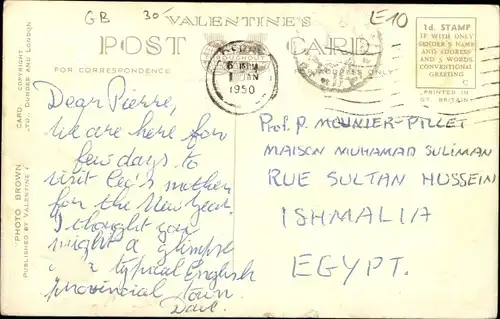 GB 30- E10
VALENTINE'S
POST CARD
FOR CORRESPONDENCE
1d. STAMP
IF WITH ONLY
SENDER'S NAME
AND ADDRESS
AND 5 WORDS
CONVENTIONAL
GREETING
PRINTED IN
GT. BRITAIN
JAN
1950
"PHOTO BROWN" CARD. COPYRIGHT
PUBLISHED BY VALENTINE LTD., DUNDEE AND LONDON
Dear Pierre,
We are here for
few days to
visit Leo's mother
for the New Year.
I thought you
might a glimpse
a typical English
provincial town.
Prof. P. MOUNIER-PILLET
MAISON MUHAMAD SULIMAN
RUE SULTAN HUSSEIN
ISHMALIA
EGYPT.